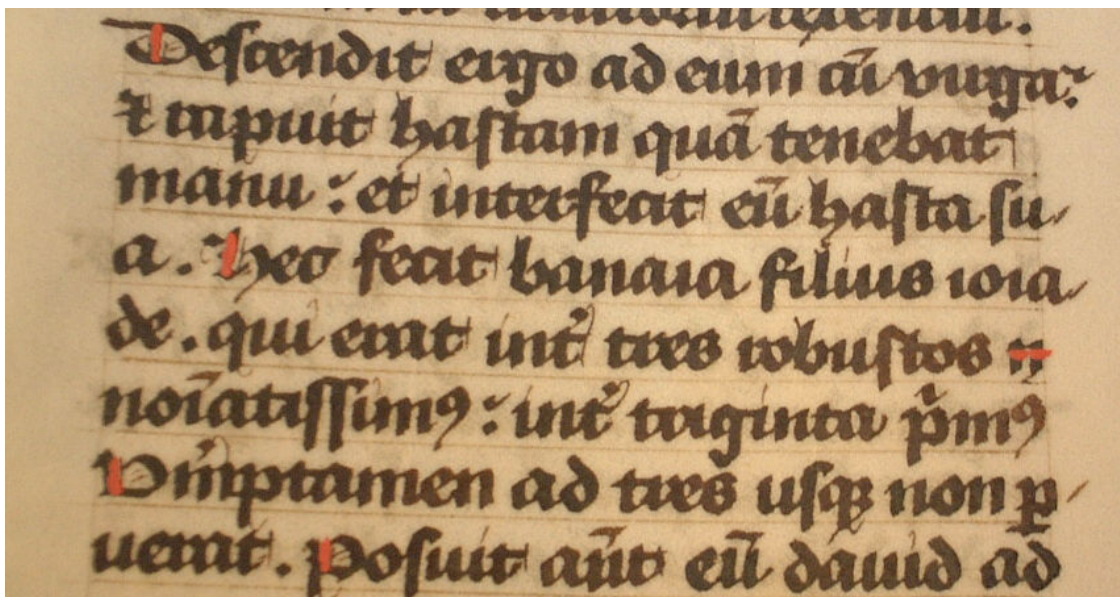 Descendit ergo ad eum cū virga:
⁊ rapuit hastam quā tenebat
manu: et interfecit eū hasta su
a. Hec fecit banaia filius ioia
de. qui erat int͛ tres robustos
noīatissimꝯ: int͛ triginta p̄mꝯ
ad tres usqꝫ non ꝑ
uerat. Posuit aūt eū dauid ad